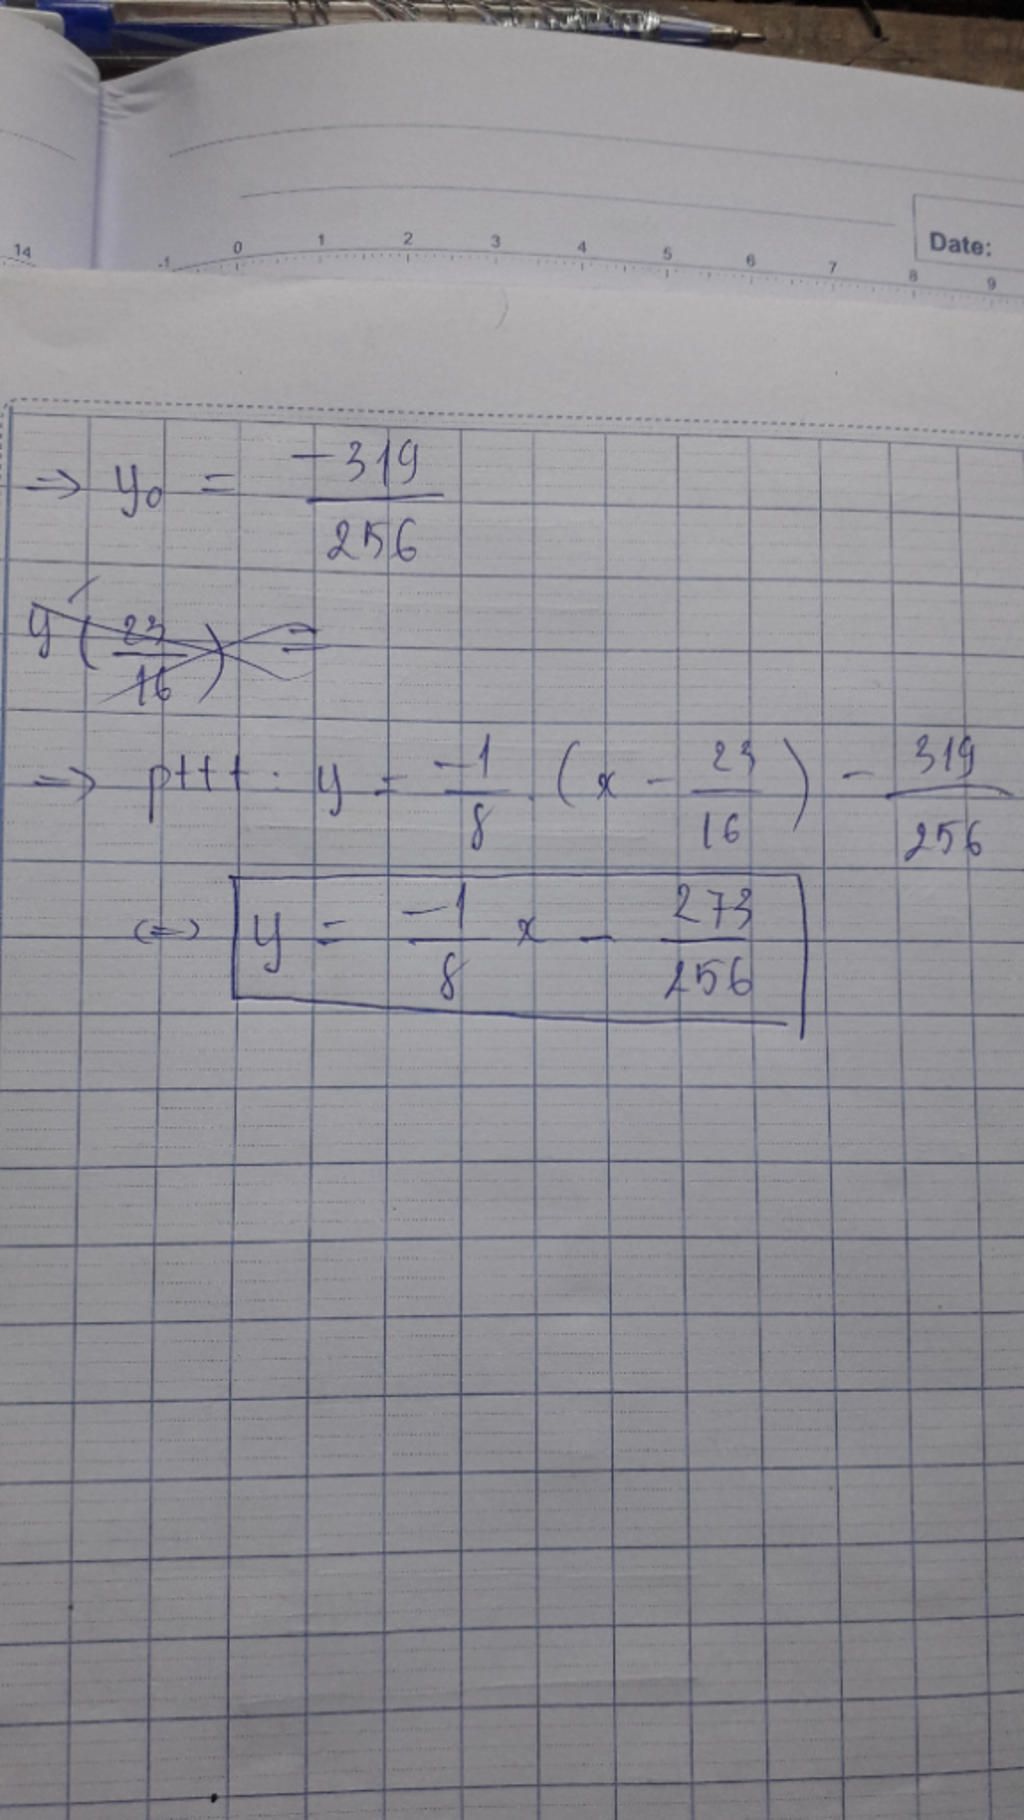 Date:
14 -1 0 1 2 3 4 5 6 7 8 9
=> y₀ = -319/256
y'(23/16) =
=> pttt: y = -1/8 . (x - 23/16) - 319/256
(=) y = -1/8 x - 273/256